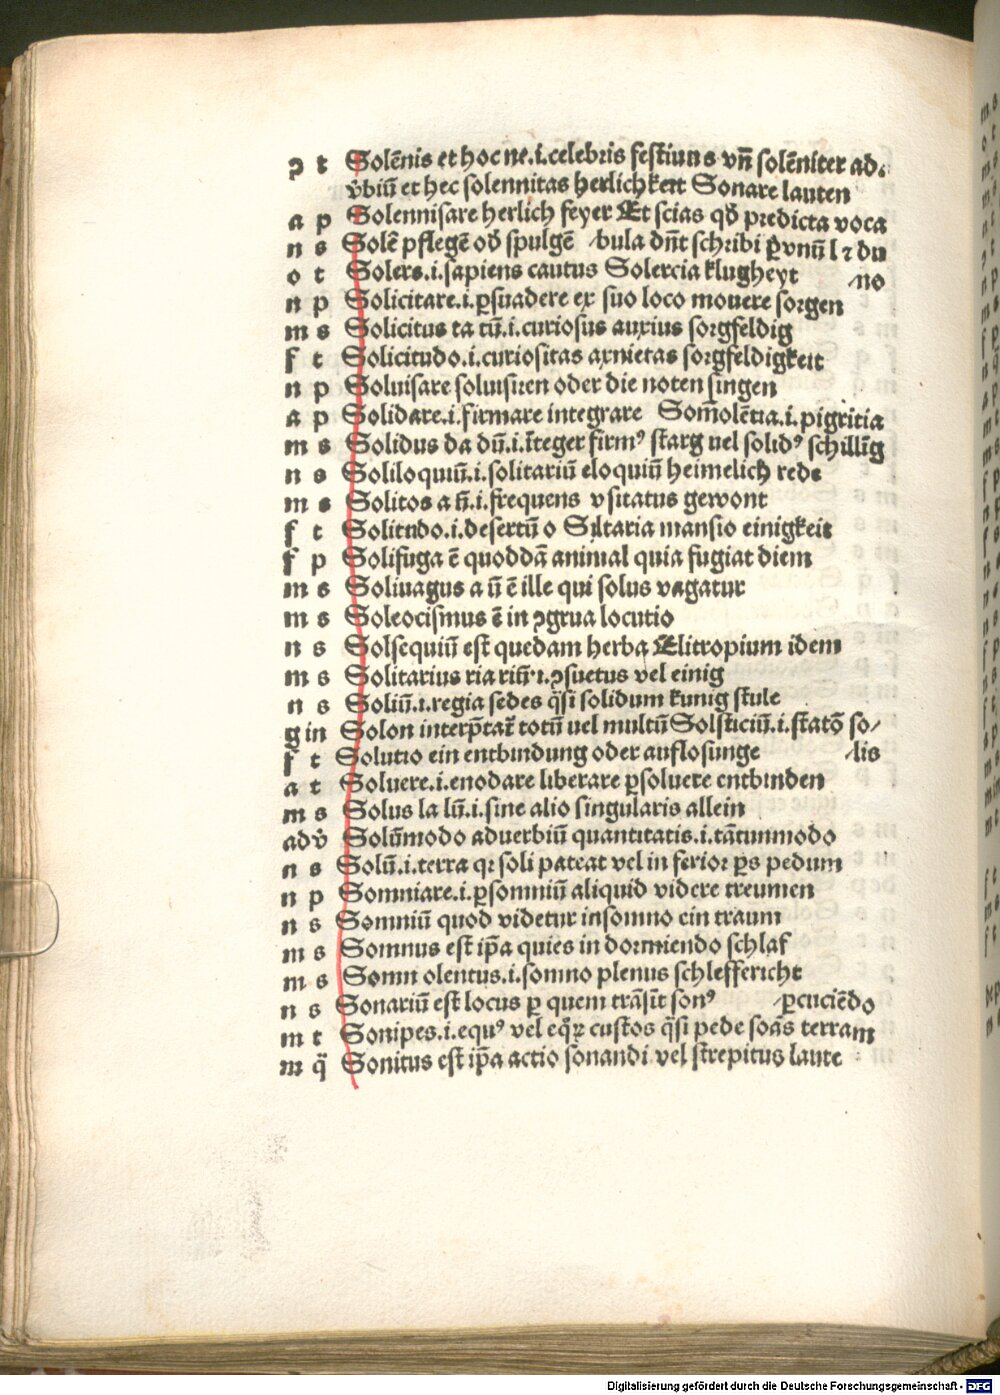 ꝯ t Solēnis et hoc ne.i.celebris festiuus vñ solēniter ad.
v̓biū et hec solennitas herlichkeit Sonare lauten
a p Solennisare herlich feyer Et scias qd̓ predicta voca
n s Solē pflegē od̓ spulgē /bula dn̄t schribi ꝑ vnū l ⁊ du
o t Solers.i.sapiens cautus Solercia klugheyt /no
n p Solicitare.i.ꝑsuadere ex suo loco mouere sorgen
m s Solicitus ta tū.i.curiosus auxius sorgfeldig
f t Solicitudo.i.curiositas axnietas sorgfeldigkeit
n p Soluisare soluisiren oder die noten singen
a p Solidare.i.firmare integrare Som̄olētia.i.pigritia
m s Solidus da dū.i.īteger firmꝰ starg uel solidꝰ schillīg
n s Soliloquiū.i.solitariū eloquiū heimelich rede
m s Solitos a ū.i.frequens vsitatus gewont
f t Solitndo.i.desertū o Siltaria mansio einigkeit
f p Solifuga ē quoddā animal quia fugiat diem
m s Soliuagus a ū ē ille qui solus vagatur
m s Soleocismus ē in ꝯgrua locutio
n s Solsequiū est quedam herba Elitropium idem
m s Solitarius ria riū.i.ꝯsuetus vel einig
n s Soliū.i.regia sedes q̄si solidum kunig stule
g in Solon interp̄tat̄ totū uel multū Solsticiū.i.statō so/
f t Solutio ein entbindung oder auflosunge /lis
a t Soluere.i.enodare liberare ꝑsoluere entbinden
m s Solus la lū.i.sine alio singularis allein
adv̓ Solūmodo aduerbiū quantitatis.i.tātunmodo
n s Solū.i.terra qr soli pateat vel in ferior ꝑs pedum
n p Somniare.i.ꝑsomniū aliquid videre treumen
n s Somniū quod videtur insomno ein traum
m s Somnus est ip̄a quies in dormiendo schlaf
m s Somn olentus.i.somno plenus schleffericht
n s Sonariū est locus ꝑ quem trāsīt sonꝰ /ꝑcuciēdo
m t Sonipes.i.equꝰ vel eq̄ꝝ custos q̄si pede soās terram
m q̄ Sonitus est ip̄a actio sonandi vel strepitus laute
Digitalisierung gefördert durch die Deutsche Forschungsgemeinschaft - DFG